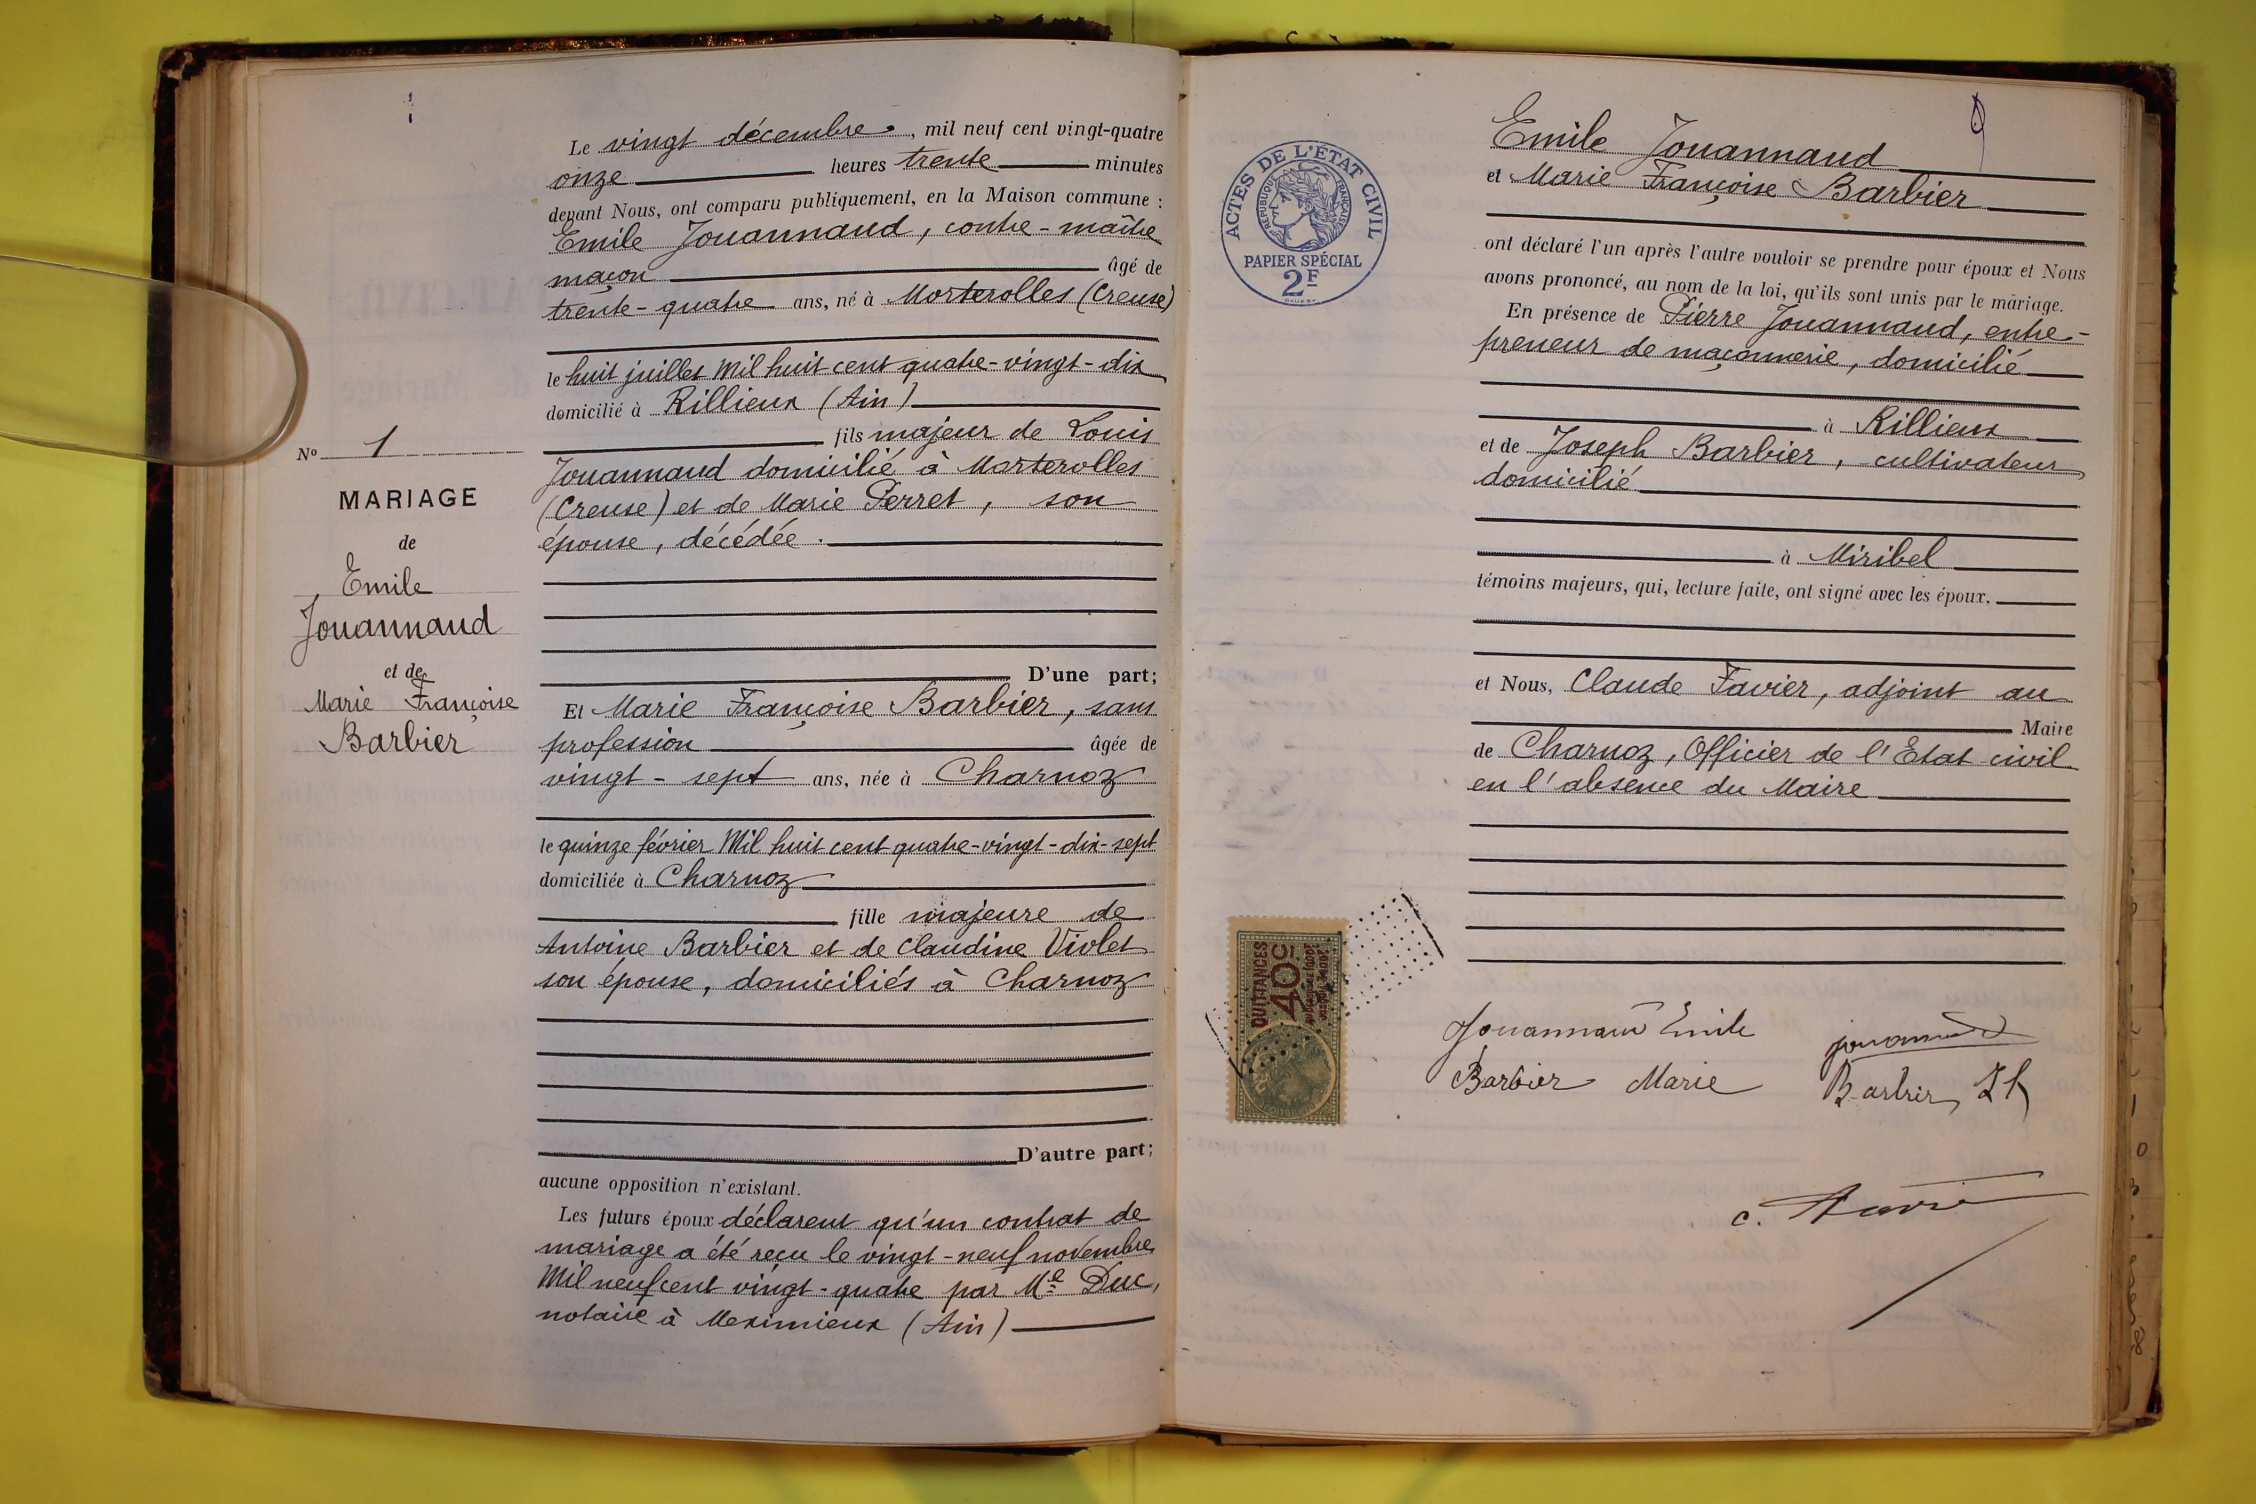 Le vingt décembre, mil neuf cent vingt-quatre
onze heures trente minutes
devant Nous, ont comparu publiquement, en la Maison commune :
Emile Jouannaud, contre-maître
maçon âgé de
trente-quatre ans, né à Morterolles (Creuse)
le huit juillet mil huit cent quatre-vingt-dix
domicilié à Rillieux (Ain)
fils majeur de Louis
Jouannaud domicilié à Morterolles
(Creuse) et de Marie Perret, son
épouse, décédée.
D'une part;
Et Marie Françoise Barbier, sans
profession âgée de
vingt-sept ans, née à Charnoz
le quinze février Mil huit cent quatre-vingt-dix-sept
domiciliée à Charnoz
fille majeure de
Antoine Barbier et de Claudine Violet
son épouse, domiciliés à Charnoz
D'autre part;
aucune opposition n'existant.
Les futurs époux déclarent qu'un contrat de
mariage a été reçu le vingt-neuf novembre
Mil neuf cent vingt-quatre par Me Duc,
notaire à Meximieux (Ain)
No 1
MARIAGE
de
Emile
Jouannaud
et de
Marie Françoise
Barbier
ACTES DE L'ÉTAT CIVIL
RÉPUBLIQUE FRANÇAISE
PAPIER SPÉCIAL
2F
Emile Jouannaud
et Marie Françoise Barbier
ont déclaré l'un après l'autre vouloir se prendre pour époux et Nous
avons prononcé, au nom de la loi, qu'ils sont unis par le mariage.
En présence de Pierre Jouannaud, entre-
preneur de maçonnerie, domicilié
à Rillieux
et de Joseph Barbier, cultivateur
domicilié
à Miribel
témoins majeurs, qui, lecture faite, ont signé avec les époux.
et Nous, Claude Favier, adjoint au
Maire
de Charnoz, Officier de l'Etat civil
en l'absence du Maire
QUITTANCES
40c
Jouannaud Emile
Jouannaud
Barbier Marie
Barbier Jh
C. Favier